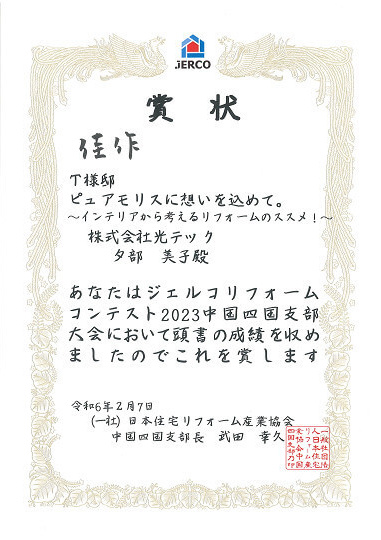 JERCO
賞状
佳作
T様邸
ピュアモリスに想いを込めて。
～インテリアから考えるリフォームのススメ！～
株式会社光テック
夕部 美子殿
あなたはジェルコリフォーム
コンテスト2023中国四国支部
大会において頭書の成績を収め
ましたのでこれを賞します
令和6年2月7日
(一社)日本住宅リフォーム産業協会
中国四国支部長 武田 幸久
一般社団法
人日本住宅
リフォーム産
業協会中国
四国支部乃印